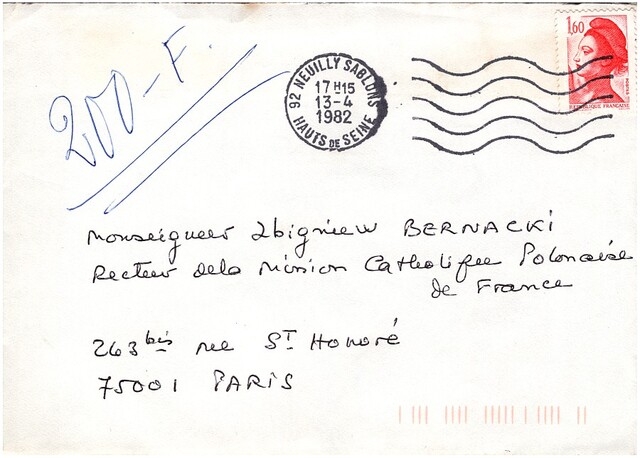 200-F.
92 NEUILLY SABLONS
17H15
13-4
1982
HAUTS DE SEINE
1,60
REPUBLIQUE FRANCAISE
Monseigneur Zbigniew BERNACKI
Recteur de la Mission Catholique Polonaise
de France
263 bis rue ST Honoré
75001 PARIS